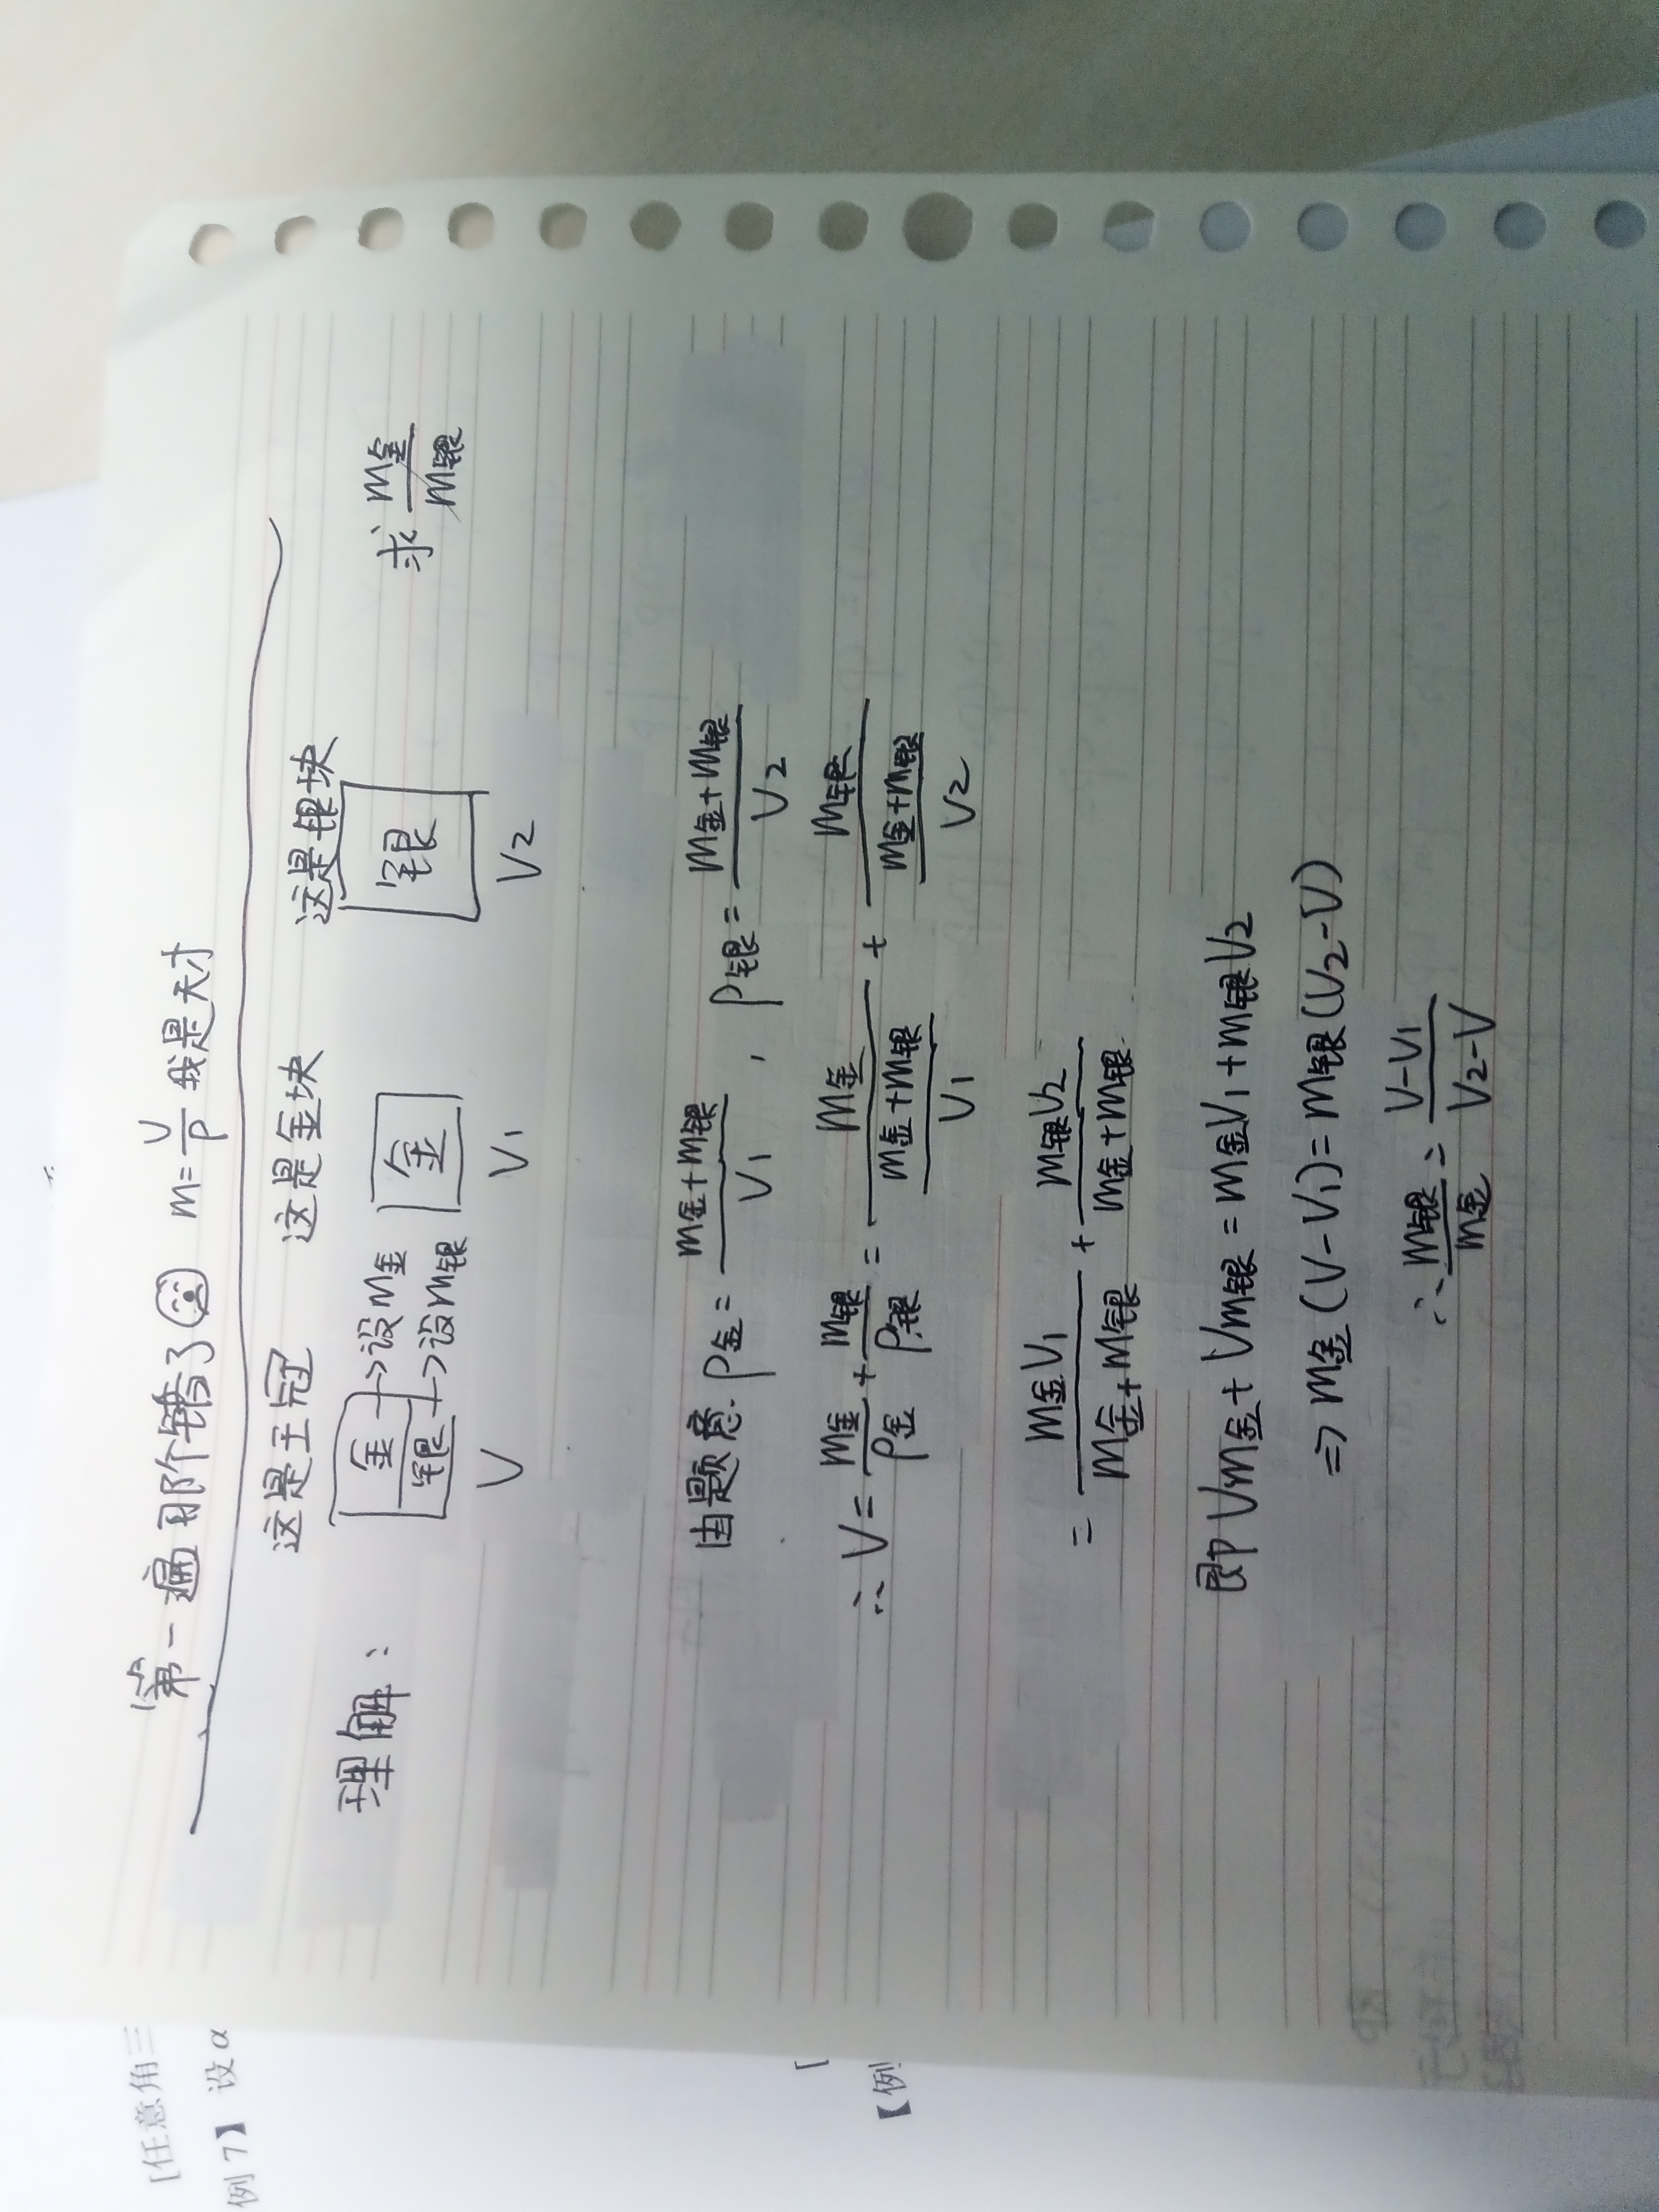 第一遍那个错了 m=V/ρ 我是天才
这是王冠 这是金块 这是银块
理解: 金 →设m金 金 银 求 m金/m银
银 →设m银
V V₁ V₂
由题意. ρ金=(m金+m银)/V₁ , ρ银=(m金+m银)/V₂
∴ V=m金/ρ金+m银/ρ银=m金/((m金+m银)/V₁)+m银/((m金+m银)/V₂)
=m金V₁/(m金+m银)+m银V₂/(m金+m银)
即Vm金+Vm银=m金V₁+m银V₂
⇒m金(V-V₁)=m银(V₂-V)
∴ m银/m金=(V-V₁)/(V₂-V)
[任意角三
例7】设α
[
【例